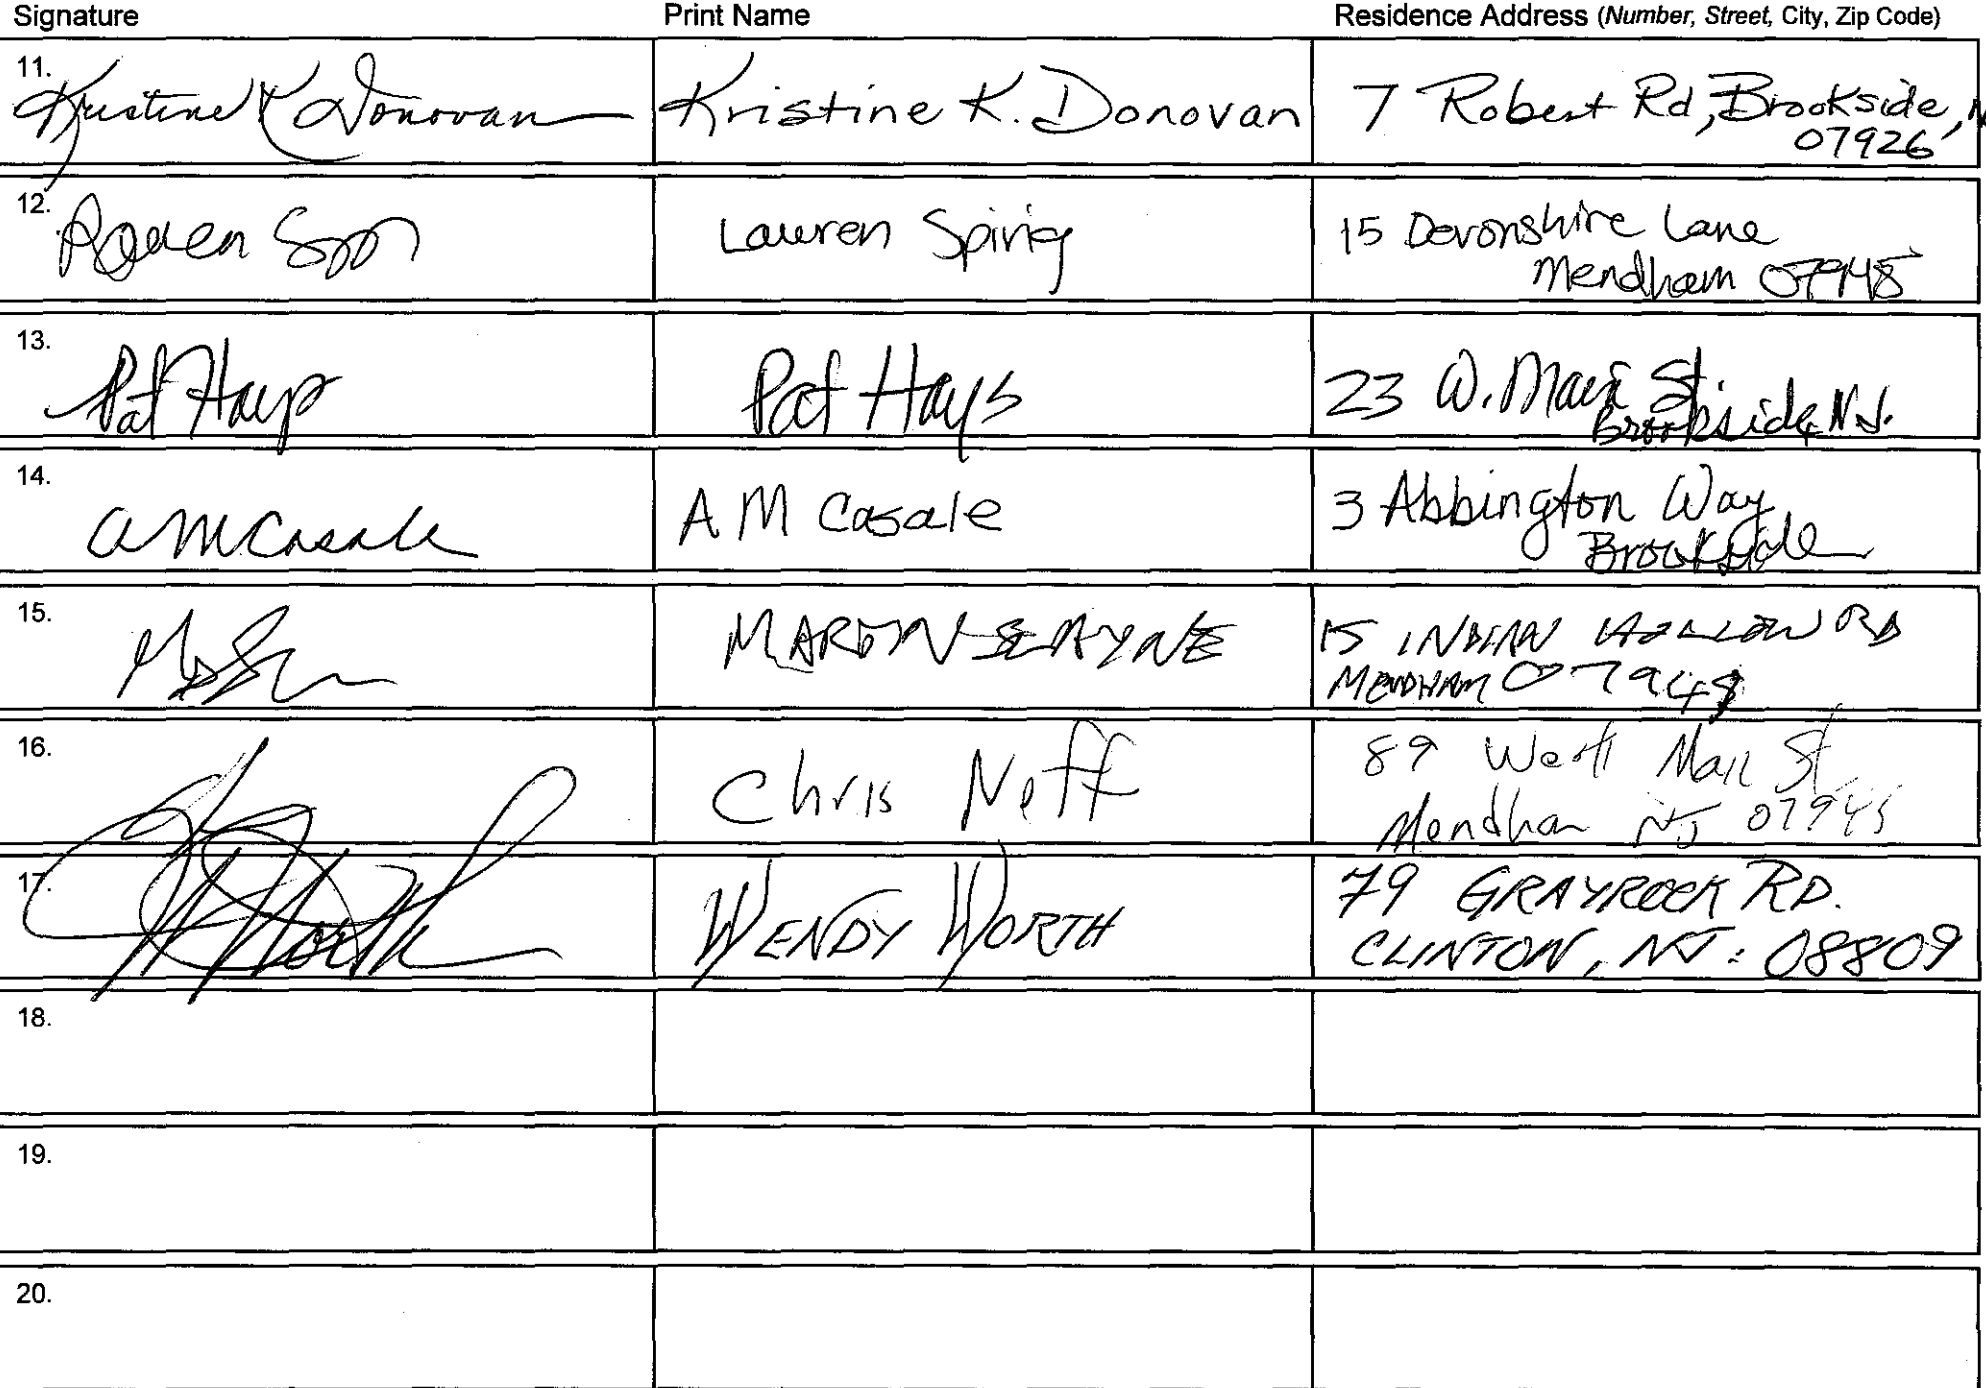 Signature Print Name Residence Address (Number, Street, City, Zip Code)
11.
Kristine K Donovan Kristine K. Donovan 7 Robert Rd, Brookside, N
07926
12.
Lauren Spirig 15 Devonshire Lane
Mendham 07945
13.
Pat Hays Pat Hays 23 W. Main St.
Brookside N.J.
14.
A M Casale A M Casale 3 Abbington Way
Brookside
15.
15 INDIAN HOLLOW RD
MENDHAM 0794
16.
Chris Neff 89 West Main St
Mendham NJ 07945
17.
W Worth WENDY WORTH 79 GRAYROCK RD.
CLINTON, NJ: 08809
18.
19.
20.